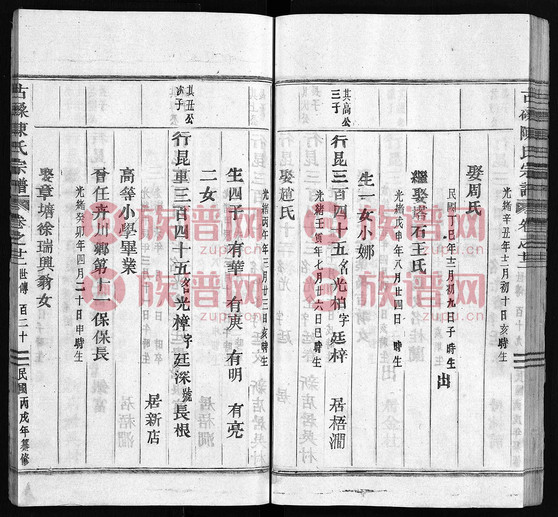 古磉陳氏宗譜
卷之廿二
世傳
光緒辛丑年十二月初十日亥時生
娶周氏
民國丁巳年十二月初九日子時生
出
繼娶塔石王氏
光緒戊申年八月廿四日 時生
生一女小娜
其高公
三子
行昆三百四十五名光柏字廷梓 居梧澗
光緒壬寅年七月廿六日巳時生
娶趙氏
光緒丙午年三月廿三日亥時生
生四子 有華 有庚 有明 有亮
二女
其丑公
次子
行昆重三百四十五名光樟字廷深號長根 居新店
高等小學畢業
曾任卉川鄉第十一保保長
光緒癸卯年四月二十日申時生
娶章塘徐瑞興翁女
古磉陳氏宗譜
卷之廿二
世傳
百二十
民國丙戌年纂修
族譜网